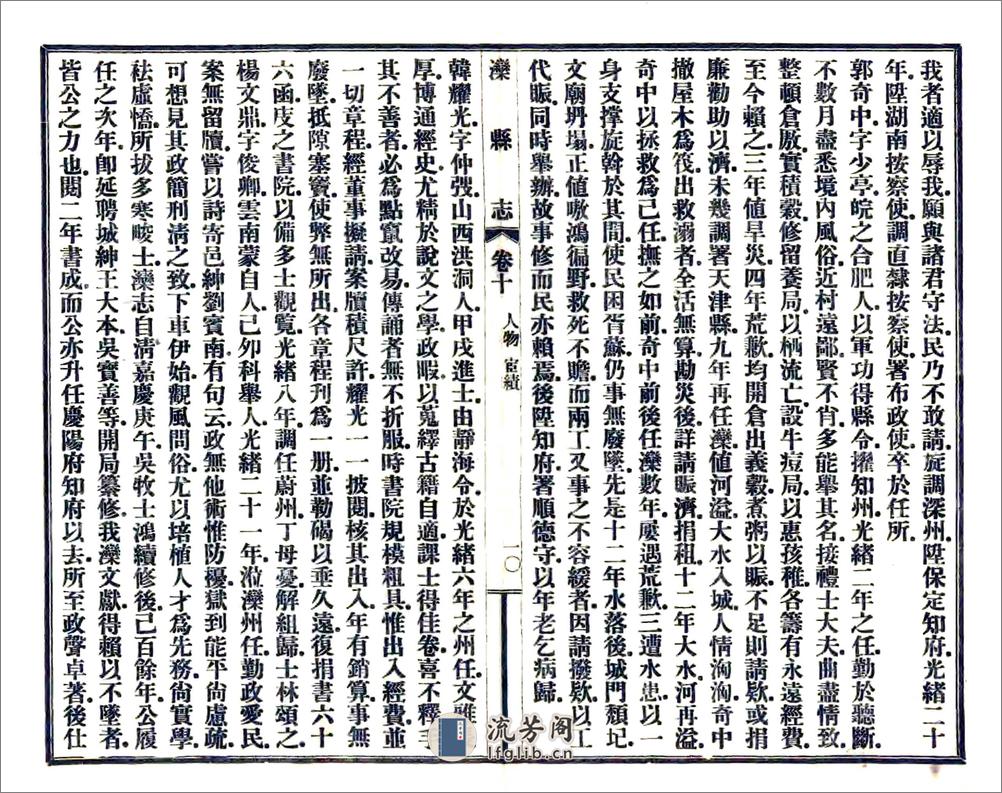 我者適以辱我願與諸君守法民乃不敢請旋調深州陞保定知府光緒二十
年陞湖南按察使調直隸按察使署布政使卒於任所
郭奇中字少亭皖之合肥人以軍功得縣令擢知州光緒二年之任勤於聽斷
不數月盡悉境內風俗近村遠鄙賢不肖多能舉其名接禮士大夫曲盡情致
整頓倉厫實積穀修留養局以栖流亡設牛痘局以惠孩稚各籌有永遠經費
至今賴之三年值旱災四年荒歉均開倉出義穀煮粥以賑不足則請欵或捐
廉勸助以濟未幾調署天津縣九年再任灤值河溢大水入城人情洶洶奇中
撤屋木爲筏出救溺者全活無算勘災後詳請賑濟捐租十二年大水河再溢
奇中以拯救爲己任撫之如前奇中前後任灤數年屢遇荒歉三遭水患以一
身支撐旋斡於其間使民困胥蘇仍事無廢墜先是十二年水落後城門頽圮
文廟坍塌正值嗷鴻徧野救死不贍而兩工又事之不容緩者因請撥欵以工
代賑同時舉辦故事修而民亦賴焉後陞知府署順德守以年老乞病歸
灤縣志 卷十 人物 宦績 一〇
韓耀光字仲弢山西洪洞人甲戌進士由靜海令於光緒六年之州任文雅
厚博通經史尤精於說文之學政暇以蒐繹古籍自適課士得佳卷喜不釋
其不善者必爲點竄改易傳誦者無不折服時書院規模粗具惟出入經費並
一切章程經董事擬請案牘積尺許耀光一一披閱核其出入年有銷算事無
廢墜抵隙塞竇使弊無所出各章程刊爲一册並勒碣以垂久遠復捐書六十
六函庋之書院以備多士觀覽光緒八年調任蔚州丁母憂解組歸士林頌之
楊文鼎字俊卿雲南蒙自人己夘科舉人光緒二十一年涖灤州任勤政愛民
案無留牘嘗以詩寄邑紳劉賓南有句云政無他術惟防擾獄到能平尙慮疏
可想見其政簡刑淸之致下車伊始觀風問俗尤以培植人才爲先務尙實學
祛虛憍所拔多寒畯士灤志自淸嘉慶庚午吳牧士鴻續修後已百餘年公履
任之次年卽延聘城紳王大本吳寶善等開局纂修我灤文獻得賴以不墜者
皆公之力也閱二年書成而公亦升任慶陽府知府以去所至政聲卓著後仕
流芳阁
lfglib.cn